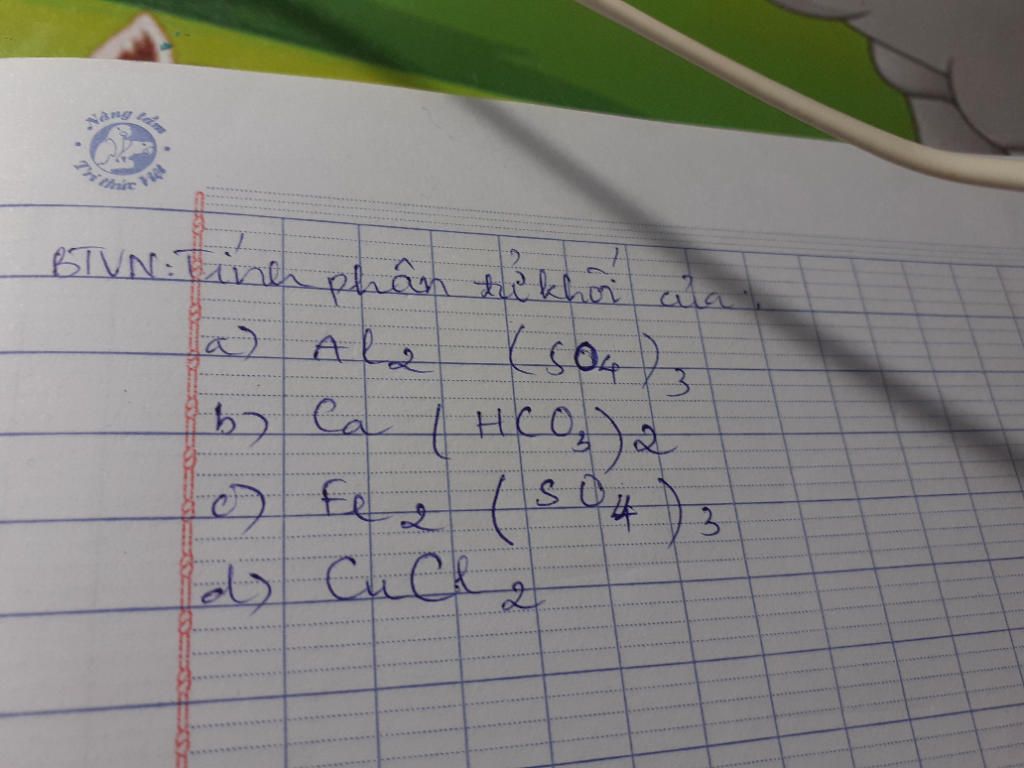 Nâng tầm
Tri thức Việt
BTVN: Tính phân tử khối của:
a) Al2 (SO4)3
b) Ca (HCO3)2
c) Fe2 (SO4)3
d) CuCl2